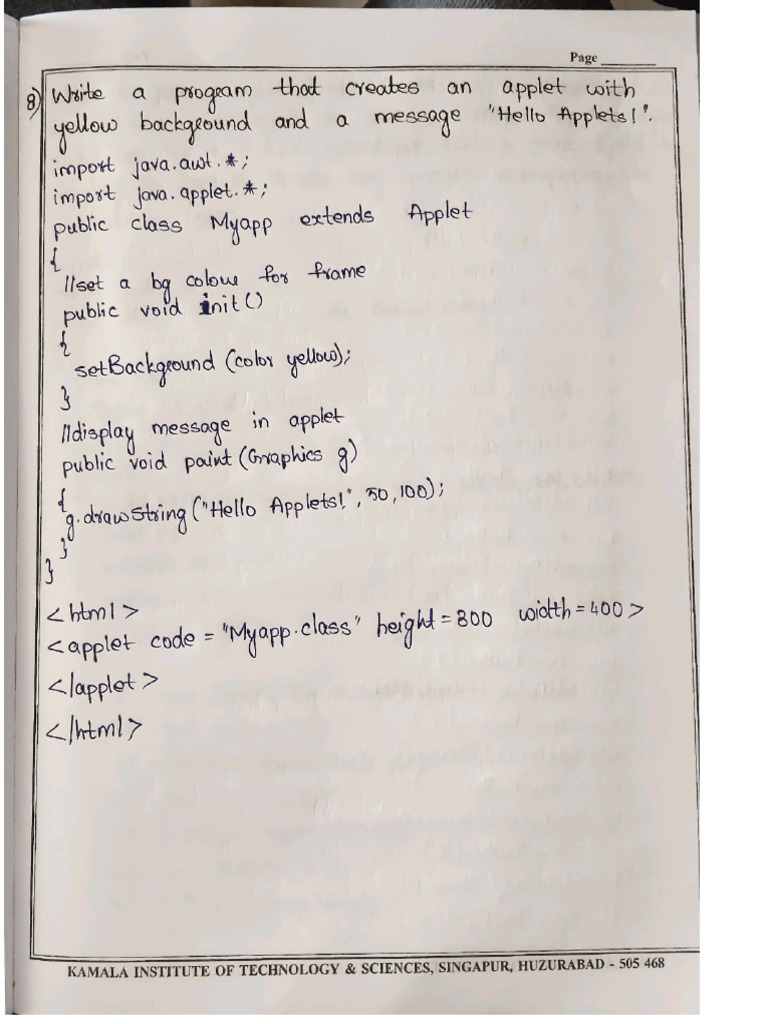 Page
8) Write a program that creates an applet with
yellow background and a message "Hello Applets!".
import java.awt.*;
import java.applet.*;
public class Myapp extends Applet
{
//set a bg colour for frame
public void init()
{
setBackground (color yellow);
}
//display message in applet
public void paint (Graphics g)
{
g.drawString ("Hello Applets!", 50, 100);
}
}
<html>
<applet code = "Myapp.class" height = 800 width = 400>
</applet>
</html>
KAMALA INSTITUTE OF TECHNOLOGY & SCIENCES, SINGAPUR, HUZURABAD - 505 468